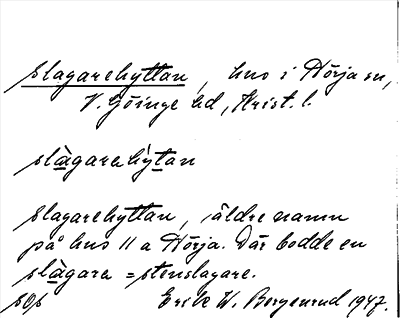 Slagarehyttan, hus i Hörja sn,
V. Göinge hd, Krist. l.
slàgarehýtan
Slagarehyttan, äldre namn
på hus 11 a Hörja. Där bodde en
slàgara = stenslagare.
sOs Erik W. Bergenrud 1947.